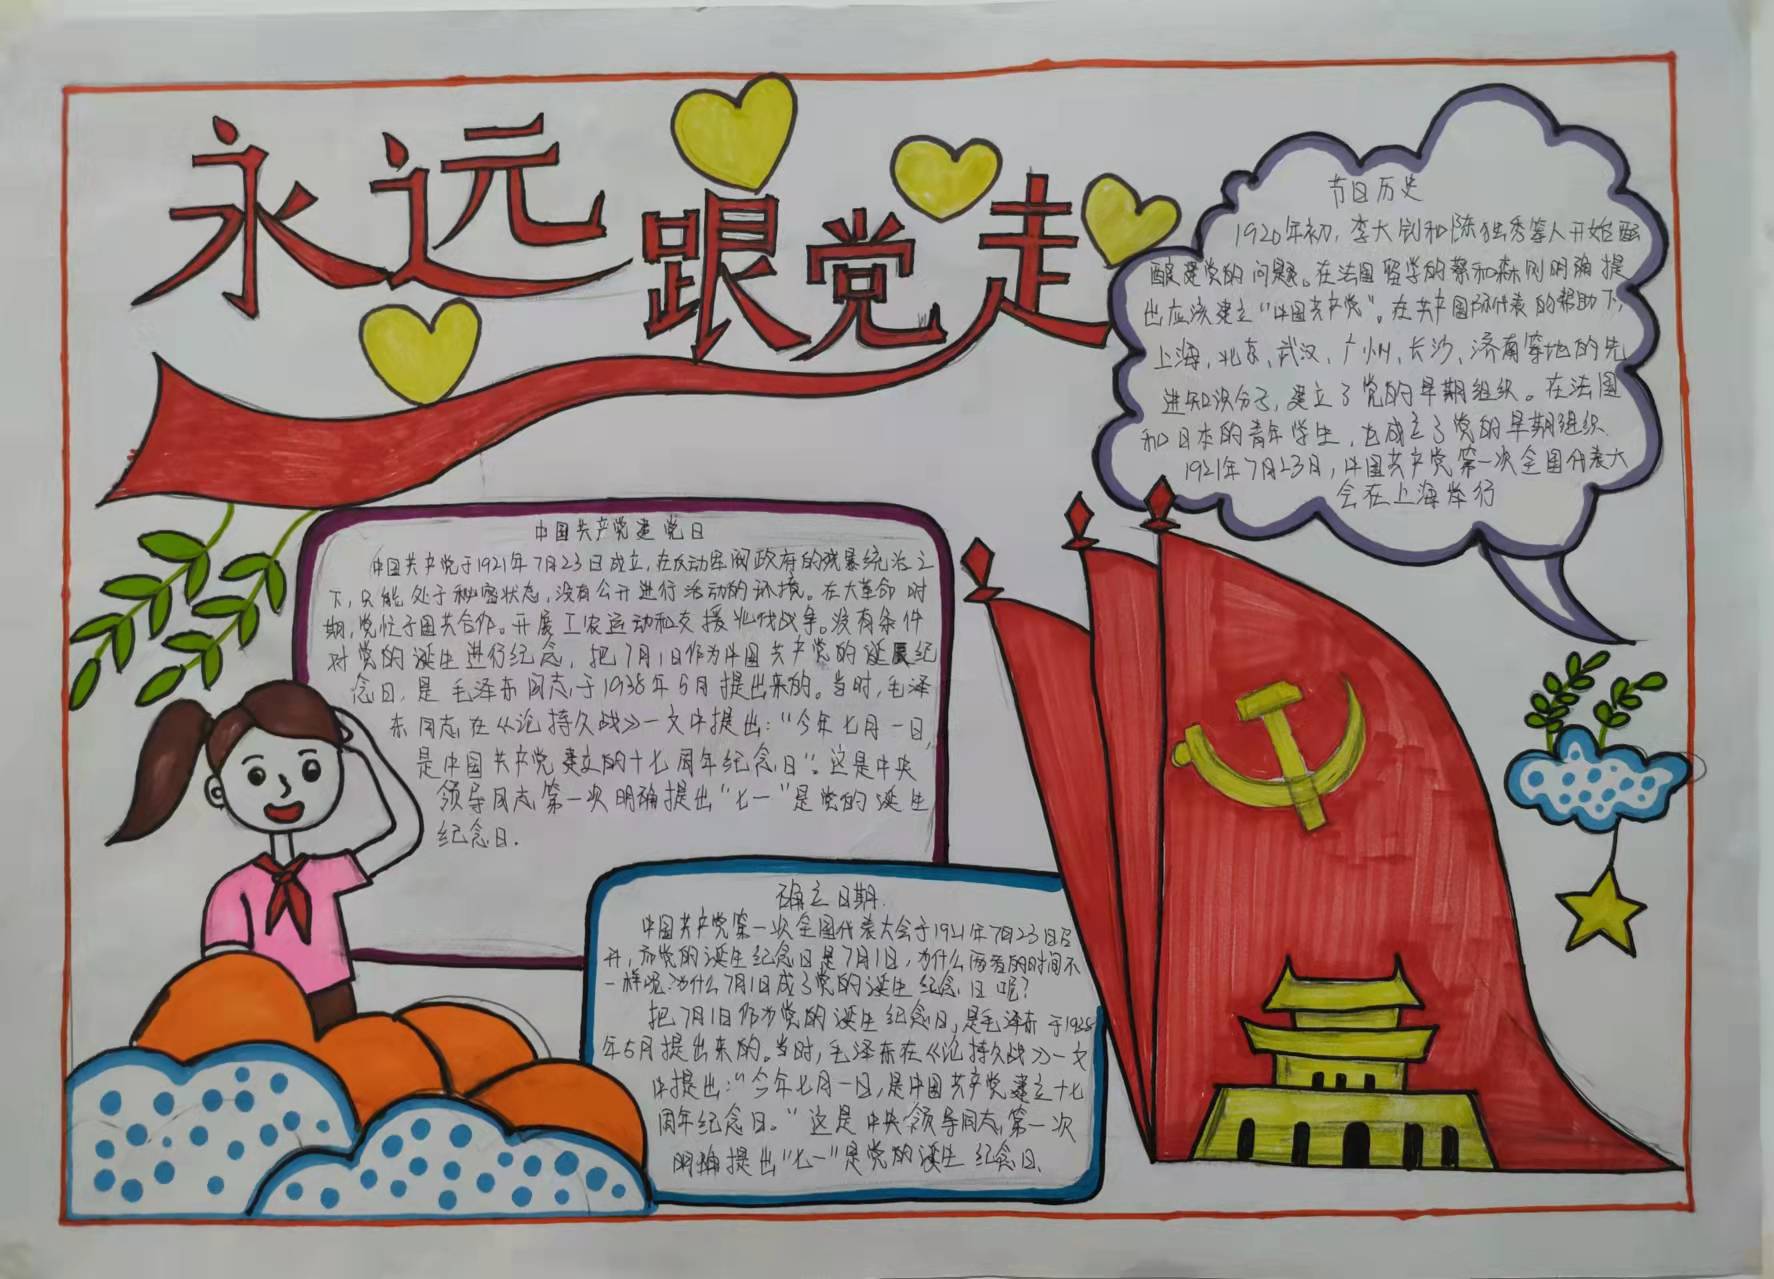 永远跟党走
节日历史
1920年初，李大钊和陈独秀等人开始酝
酿建党的问题。在法国留学的蔡和森则明确提
出应该建立“中国共产党”。在共产国际代表的帮助下，
上海、北京、武汉、广州、长沙、济南等地的先
进知识分子，建立了党的早期组织。在法国
和日本的青年学生，也成立了党的早期组织、
1921年7月23日，中国共产党第一次全国代表大
会在上海举行
中国共产党建党日
中国共产党于1921年7月23日成立，在反动军阀政府的残暴统治之
下，只能处于秘密状态，没有公开进行活动的环境。在大革命时
期，党忙于国共合作。开展工农运动和支援北伐战争。没有条件
对党的诞生进行纪念，把7月1日作为中国共产党的诞辰纪
念日，是毛泽东同志于1938年5月提出来的。当时，毛泽
东同志在《论持久战》一文中提出：“今年七月一日，
是中国共产党建立的十七周年纪念日”。这是中央
领导同志第一次明确提出“七一”是党的诞生
纪念日．
确立日期．
中国共产党第一次全国代表大会于1921年7月23日召
开，而党的诞生纪念日是7月1日，为什么两者的时间不
一样呢？为什么7月1日成了党的诞生纪念日呢？
把7月1日作为党的诞生纪念日，是毛泽东于1938
年5月提出来的。当时，毛泽东在《论持久战》一文
中提出：“今年七月一日，是中国共产党建立十七
周年纪念日。”这是中央领导同志，第一次
明确提出“七一”是党的诞生纪念日、